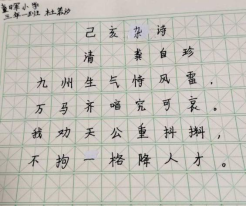 三年一班
己亥杂诗
清 龚自珍
九州生气恃风雷，
万马齐喑究可哀。
我劝天公重抖擞，
不拘一格降人才。